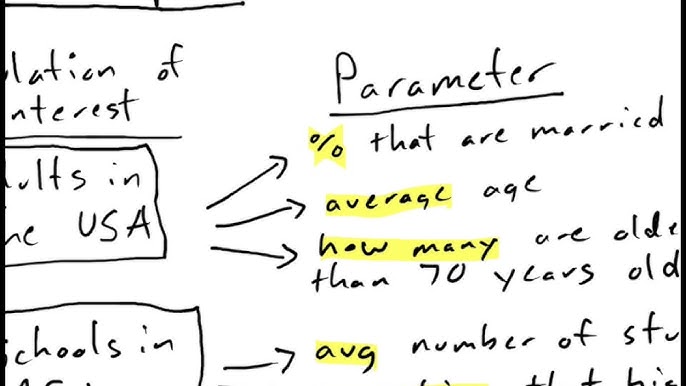 ulation of
nterest
Parameter
% that are married
ults in
he USA
average age
how many are olde
than 70 years old
schools in
avg number of stu
that